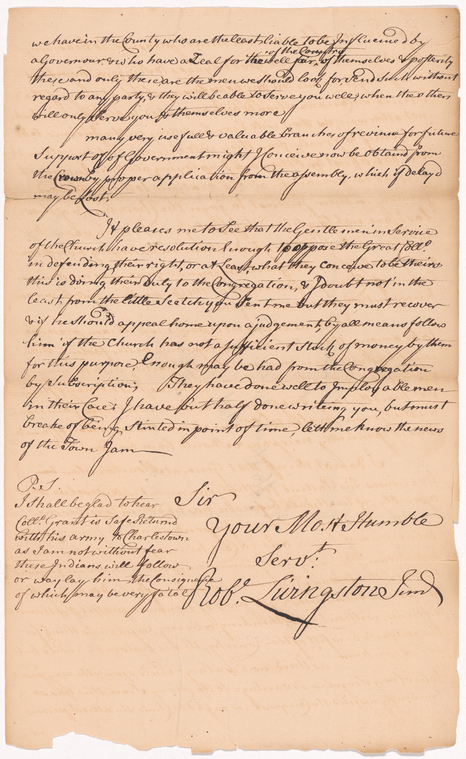 we have in the County who are the least liable to be Influenced by
a Governour & who have a Zeal for the wellfair, of the Country of themselves & posterity
these and only these are the men we should look for and select without
regard to any party, & they will be able to serve you well, when the others
will only serve you & themselves more
many very usefull & valuable branches of revinue for future
Support of of Government might I Conceive now be obtained from
the Crown by proper application from the assembly, which if delayd
may be Lost.
It pleases me to See that the Gentlemen in Service
of the Church have resolution Enough to oppose the Great
in defending their right, or at Least what they conceve to be theirs
this is doing their Duty to the Congregation, & I doubt not in the
least, from the little Scetch you Sent me but they must recover
& if he Should appeal home upon a judgement, by all means follow
him if the Church has not a sufficient Stock of money by them
for this purpose, Enough may be had from the Congregation
by Subscription; They have done well to Imploy able men
in their Case; I have but half done writeing you, but must
breake of being Stinted in point of time, let me know the news
of the Town I am
P.S.
I shall be glad to hear
Coll.o Grant is Safe Returnd
with his army to Charlestown
as I am not without fear
these Indians will follow
or way lay him the Consiquence
of which may be very fatal
Sir
Your Mo.st Humble
Serv.t
Rob.t Livingston Jun.r